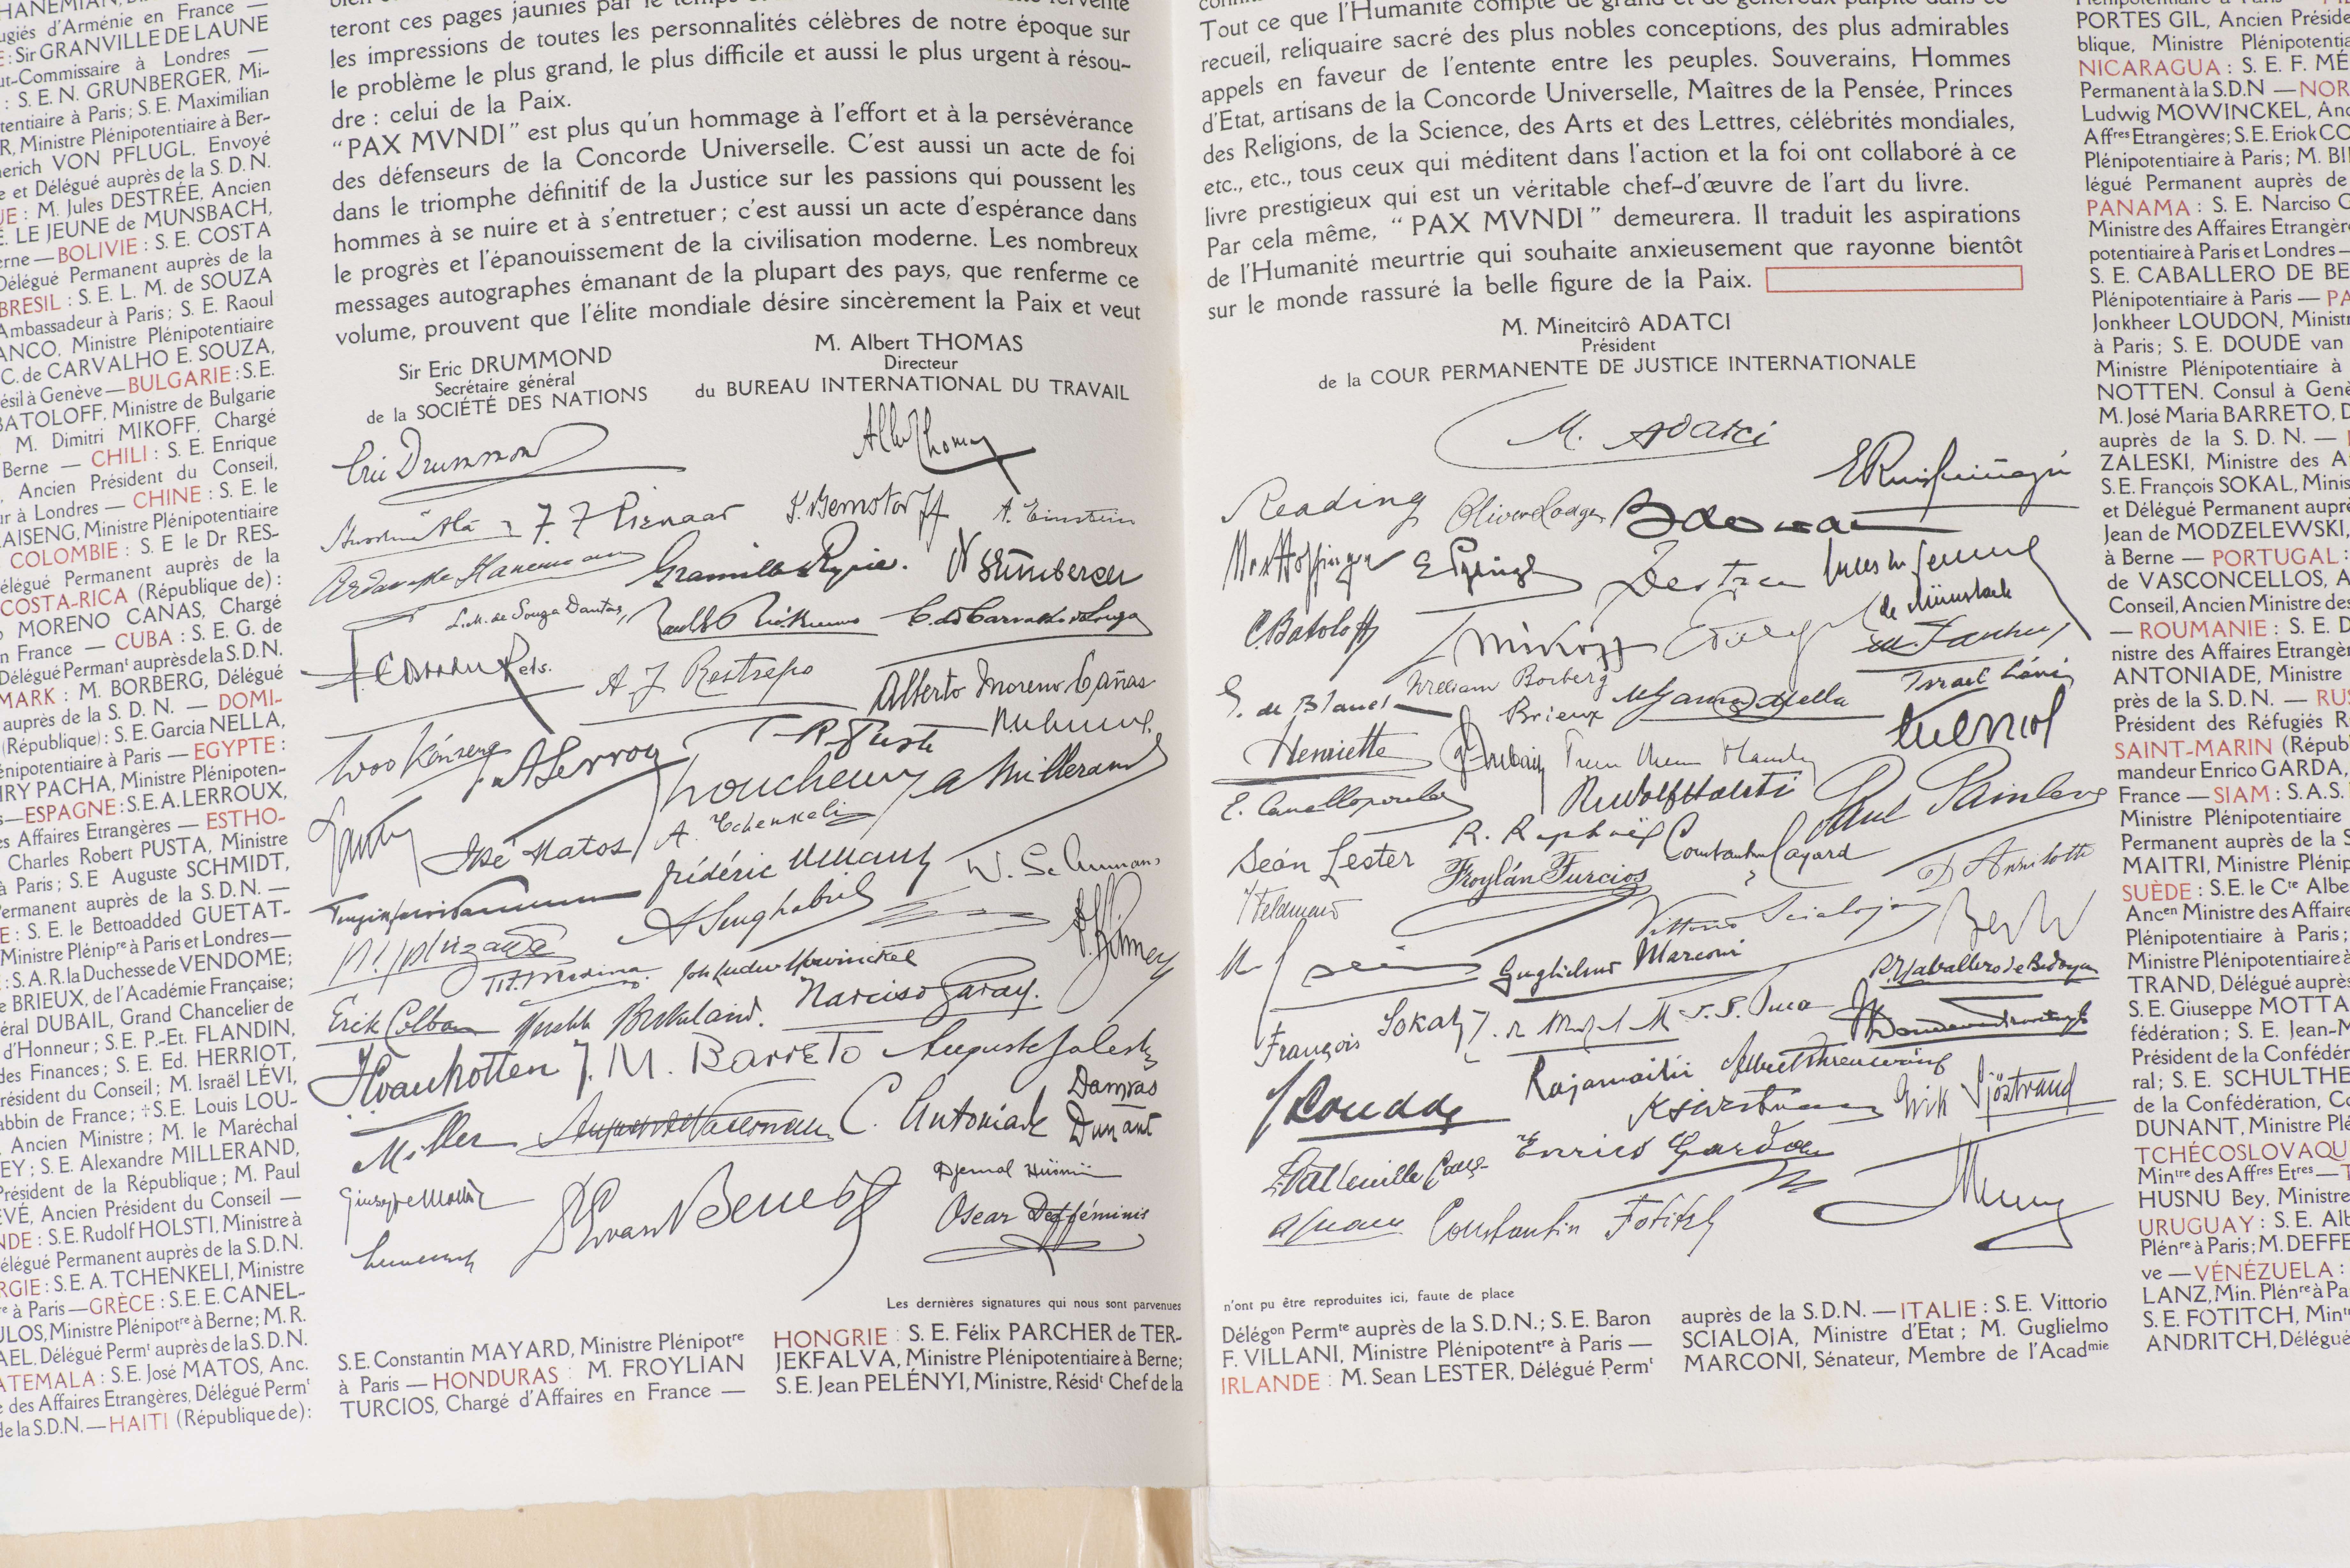 HANEMIAN,
ugiés d'Arménie en France —
E : Sir GRANVILLE DE LAUNE
ut-Commissaire à Londres —
: S. E. N. GRUNBERGER, Mi-
tentiaire à Paris; S. E. Maximilian
R, Ministre Plénipotentiaire à Ber-
nerich VON PFLUGL, Envoyé
e et Délégué auprès de la S. D. N.
UE : M. Jules DESTRÉE, Ancien
E. LE JEUNE de MUNSBACH,
erne — BOLIVIE : S. E. COSTA
Délégué Permanent auprès de la
BRESIL : S. E. L. M. de SOUZA
Ambassadeur à Paris; S. E. Raoul
ANCO, Ministre Plénipotentiaire
C. de CARVALHO E. SOUZA,
ésil à Genève — BULGARIE : S. E.
BATOLOFF, Ministre de Bulgarie
M. Dimitri MIKOFF, Chargé
Berne — CHILI : S. E. Enrique
, Ancien Président du Conseil,
ur à Londres — CHINE : S. E. le
AISENG, Ministre Plénipotentiaire
COLOMBIE : S. E le Dr RES-
élégué Permanent auprès de la
COSTA-RICA (République de) :
O MORENO CANAS, Chargé
n France — CUBA : S. E. G. de
Délégué Permant auprès de la S.D.N.
MARK : M. BORBERG, Délégué
auprès de la S. D. N. — DOMI-
(République) : S. E. Garcia NELLA,
énipotentiaire à Paris — EGYPTE :
IRY PACHA, Ministre Plénipoten-
s — ESPAGNE : S. E. A. LERROUX,
es Affaires Etrangères — ESTHO-
Charles Robert PUSTA, Ministre
à Paris; S. E Auguste SCHMIDT,
ermanent auprès de la S. D. N. —
E : S. E. le Bettoadded GUETAT-
Ministre Plénipre à Paris et Londres —
: S. A. R. la Duchesse de VENDOME;
e BRIEUX, de l'Académie Française;
éral DUBAIL, Grand Chancelier de
d'Honneur; S. E. P.-Et. FLANDIN,
des Finances; S. E. Ed. HERRIOT,
résident du Conseil; M. Israël LÉVI,
abbin de France; † S. E. Louis LOU-
Ancien Ministre; M. le Maréchal
EY; S. E. Alexandre MILLERAND,
Président de la République; M. Paul
EVÉ, Ancien Président du Conseil —
NDE : S. E. Rudolf HOLSTI, Ministre à
élégué Permanent auprès de la S.D.N.
RGIE : S. E. A. TCHENKELI, Ministre
re à Paris — GRÈCE : S. E. E. CANEL-
ULOS, Ministre Plénipotre à Berne; M. R.
AEL, Délégué Permt auprès de la S.D.N.
ATEMALA : S. E. José MATOS, Anc.
e des Affaires Etrangères, Délégué Permt
de la S.D.N. — HAITI (République de) :
teront ces pages jaunies par le
les impressions de toutes les personnalités célèbres de notre époque sur
le problème le plus grand, le plus difficile et aussi le plus urgent à résou-
dre : celui de la Paix.
“PAX MVNDI” est plus qu'un hommage à l'effort et à la persévérance
des défenseurs de la Concorde Universelle. C'est aussi un acte de foi
dans le triomphe définitif de la Justice sur les passions qui poussent les
hommes à se nuire et à s'entretuer ; c'est aussi un acte d'espérance dans
le progrès et l'épanouissement de la civilisation moderne. Les nombreux
messages autographes émanant de la plupart des pays, que renferme ce
volume, prouvent que l'élite mondiale désire sincèrement la Paix et veut
Sir Eric DRUMMOND
Secrétaire général
de la SOCIÉTÉ DES NATIONS
M. Albert THOMAS
Directeur
du BUREAU INTERNATIONAL DU TRAVAIL
Eric Drummond
Albert Thomas
A. Einstein
L. M. de Souza Dantas,
A J Restrepo
Alberto Moreno Cañas
C. R. Pusta
A Lerroux
Loucheur
A Millerand
José Matos
A. Tchenkeli
frédéric Villani
Erik Colban
Narciso Garay.
J. M. Barreto
Auguste Zaleski
Miller
C. Antoniade
Dampas
Dunant
Giuseppe Motta
Dr Edvard Beneš
Djemal Hüsnü
Oscar Defféminis
Les dernières signatures qui nous sont parvenues
S. E. Constantin MAYARD, Ministre Plénipotre
à Paris — HONDURAS : M. FROYLIAN
TURCIOS, Chargé d'Affaires en France —
HONGRIE : S. E. Félix PARCHER de TER-
JEKFALVA, Ministre Plénipotentiaire à Berne;
S. E. Jean PELÉNYI, Ministre, Résidt Chef de la
Tout ce que l'Humanité compte de grand et de généreux palpite dans ce
recueil, reliquaire sacré des plus nobles conceptions, des plus admirables
appels en faveur de l'entente entre les peuples. Souverains, Hommes
d'Etat, artisans de la Concorde Universelle, Maîtres de la Pensée, Princes
des Religions, de la Science, des Arts et des Lettres, célébrités mondiales,
etc., etc., tous ceux qui méditent dans l'action et la foi ont collaboré à ce
livre prestigieux qui est un véritable chef-d'œuvre de l'art du livre.
Par cela même, “ PAX MVNDI ” demeurera. Il traduit les aspirations
de l'Humanité meurtrie qui souhaite anxieusement que rayonne bientôt
sur le monde rassuré la belle figure de la Paix.
M. Mineitcirô ADATCI
Président
de la COUR PERMANENTE DE JUSTICE INTERNATIONALE
M. Adatci
Reading
Oliver Lodge
Max Hoffinger
Destrée
C. Batoloff
Mikoff
G. de Blanck
William Borberg
Brieux
Israel Lévi
Henriette
Gl Dubail
Rudolf Holsti
Paul Painlevé
E. Canellopoulos
Seán Lester
R. Raphaël
Constantin Mayard
Froylán Turcios
D Anzilotti
Vittorio Scialoja
Guglielmo Marconi
François Sokal
J Loudon
Rajamaitri
K. I. Westman
Erik Sjöstrand
Enrico Garda
Constantin Fotitch
n'ont pu être reproduites ici, faute de place
Délégon Permte auprès de la S.D.N.; S. E. Baron
F. VILLANI, Ministre Plénipotentre à Paris —
IRLANDE : M. Sean LESTER, Délégué Permt
auprès de la S.D.N. — ITALIE : S. E. Vittorio
SCIALOJA, Ministre d'Etat ; M. Guglielmo
MARCONI, Sénateur, Membre de l'Acadmie
PORTES GIL, Ancien Préside
blique, Ministre Plénipotentia
NICARAGUA : S. E. F. MÉ
Permanent à la S.D.N — NOR
Ludwig MOWINCKEL, Anc
Affres Etrangères; S. E. Eriok CO
Plénipotentiaire à Paris; M. BI
légué Permanent auprès de
PANAMA : S. E. Narciso G
Ministre des Affaires Etrangère
potentiaire à Paris et Londres —
S. E. CABALLERO DE BE
Plénipotentiaire à Paris — PA
Jonkheer LOUDON, Ministr
à Paris; S. E. DOUDE van
Ministre Plénipotentiaire à
NOTTEN. Consul à Genè
M. José Maria BARRETO, D
auprès de la S. D. N. —
ZALESKI, Ministre des A
S. E. François SOKAL, Minis
et Délégué Permanent aupr
Jean de MODZELEWSKI,
à Berne — PORTUGAL :
de VASCONCELLOS, A
Conseil, Ancien Ministre des
— ROUMANIE : S. E. D
nistre des Affaires Etrangèr
ANTONIADE, Ministre
près de la S.D.N. — RUS
Président des Réfugiés R
SAINT-MARIN (Répub
mandeur Enrico GARDA,
France — SIAM : S.A.S.
Ministre Plénipotentiaire
Permanent auprès de la S
MAITRI, Ministre Plénip
SUÈDE : S. E. le Cte Albe
Ancen Ministre des Affaire
Plénipotentiaire à Paris;
Ministre Plénipotentiaire à
TRAND, Délégué auprès
S. E. Giuseppe MOTTA
fédération; S. E. Jean-M
Président de la Confédér
ral; S. E. SCHULTHE
de la Confédération, Co
DUNANT, Ministre Plé
TCHÉCOSLOVAQU
Mintre des Affres Etres — T
HUSNU Bey, Ministre
URUGUAY : S. E. Alb
Plénre à Paris; M. DEFFE
ve — VÉNÉZUELA :
LANZ, Min. Plénre à Pa
S. E. FOTITCH, Mint
ANDRITCH, Délégué